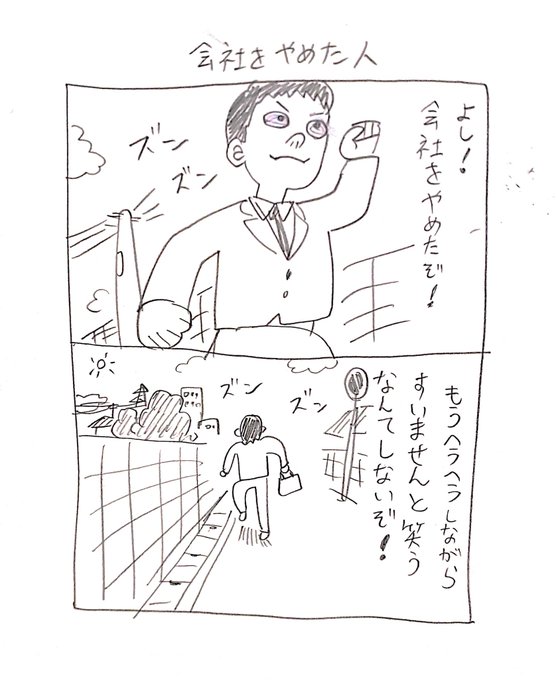 会社をやめた人
よし！
会社をやめたぞ！
ズン
ズン
もうヘラヘラしながら
すいませんと笑う
なんてしないぞ！
ズン
ズン